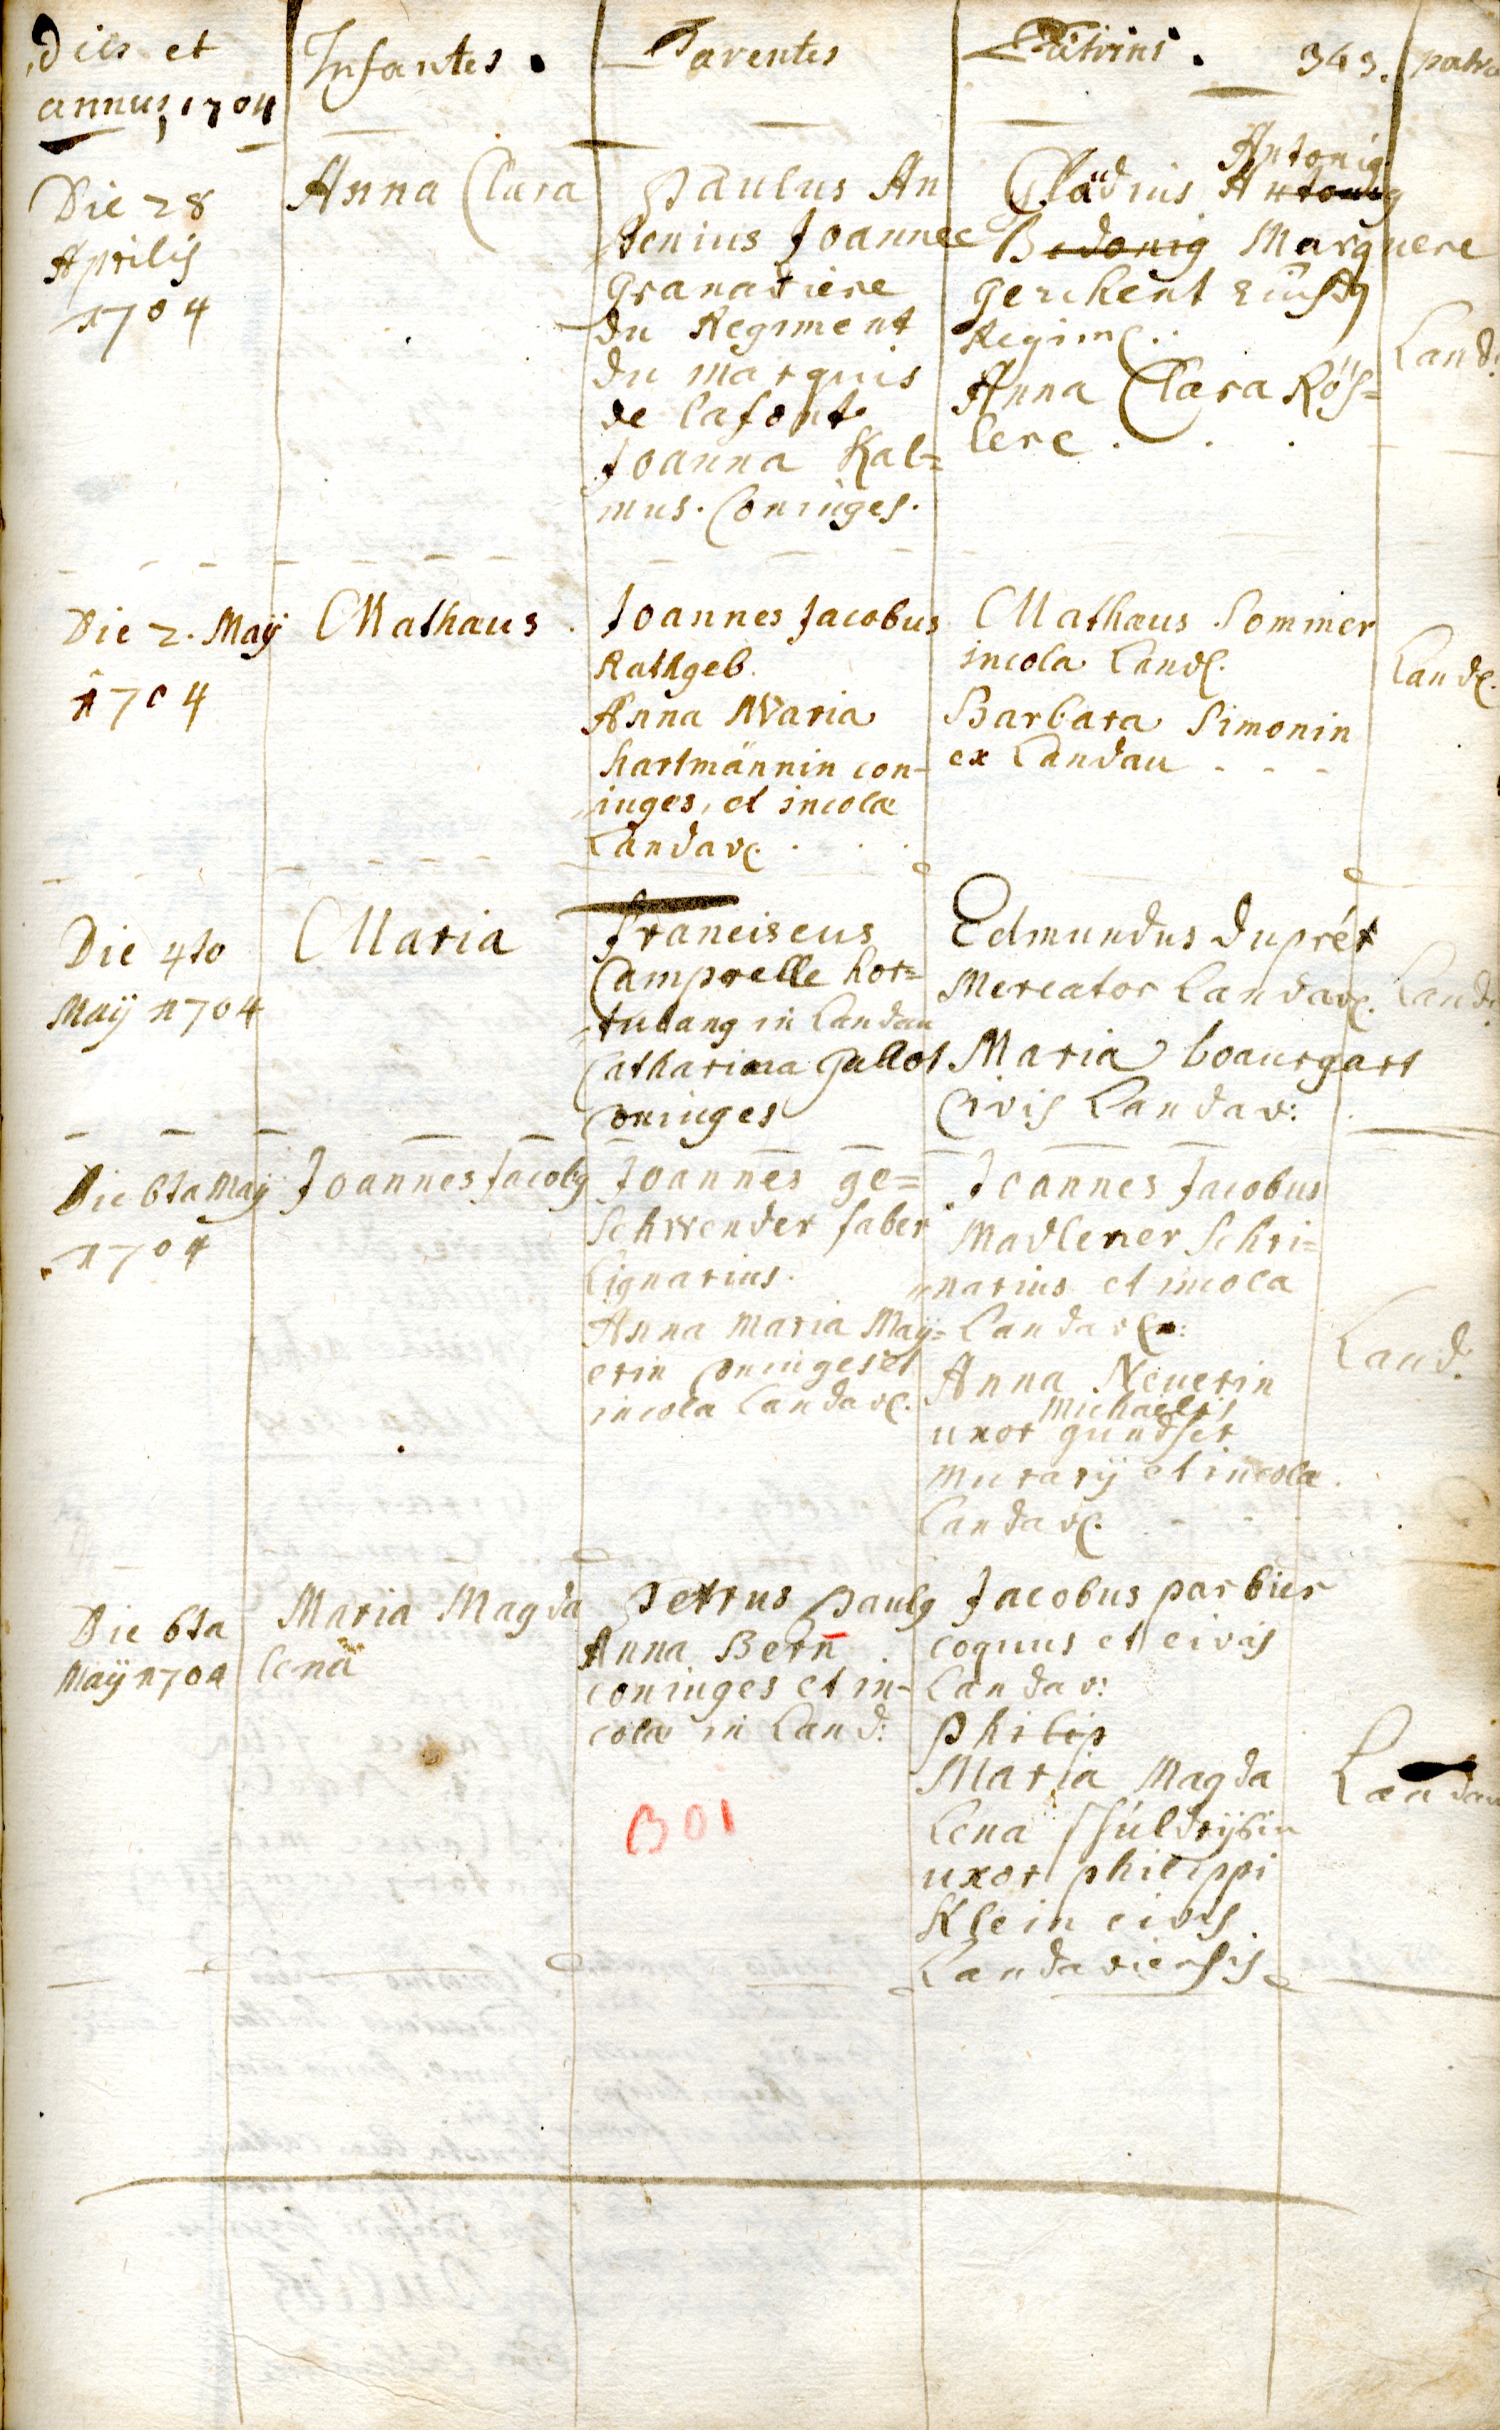 Dies et
annus, 1704
Infantes.
Parentes
Patrini.
343.
Die 28
Aprilis
1704
Anna Clara
Paulus An
tonius Joannee
Granadiere
du Regiment
du marquis
de lafont
Joanna Kal=
mus. Coniuges.
Antonig
Glaudius Antonig
Bedonig Marquere
Regime.
Anna Clara Rös=
lere.
Land:
Die 2. Maÿ
1704
Mathaus.
Joannes Jacobus
Rathgeb.
Anna Maria
hartmännin con-
iuges, et incolæ
Landav.
Mathæus Sommer
incola Land.
Barbara Simonin
ex Landau
Land.
Die 4to
Maÿ 1704
Maria
Franciscus
Camprelle hor=
tulang in Landau
Catharina Gallot
coniuges
Edmundus Duprét
Mercator Landav.
Maria boaurgart
Civis Landav:
Land.
Die 6ta Maÿ
1704
Joannes Jacobg
Joannes ge=
schwender faber
Lignarius.
Anna Maria Maÿ=
erin coniuges et
incola Landav.
Joannes Jacobus
Madlener Schri=
narius et incola
Landav:
Anna Neuerin
Michaelis
uxor gundser
murarÿ et incola
Landav.
Land.
Die 6ta
Maÿ 1704
Maria Magda
lena
Petrus Paulg
Anna Bern
coniuges et in-
colæ in Land:
B01
Jacobus parbier
coquus et civis
Landav:
Philip
Maria Magda
lena
uxor philippi
Klein civis
Landaviensis
Landau